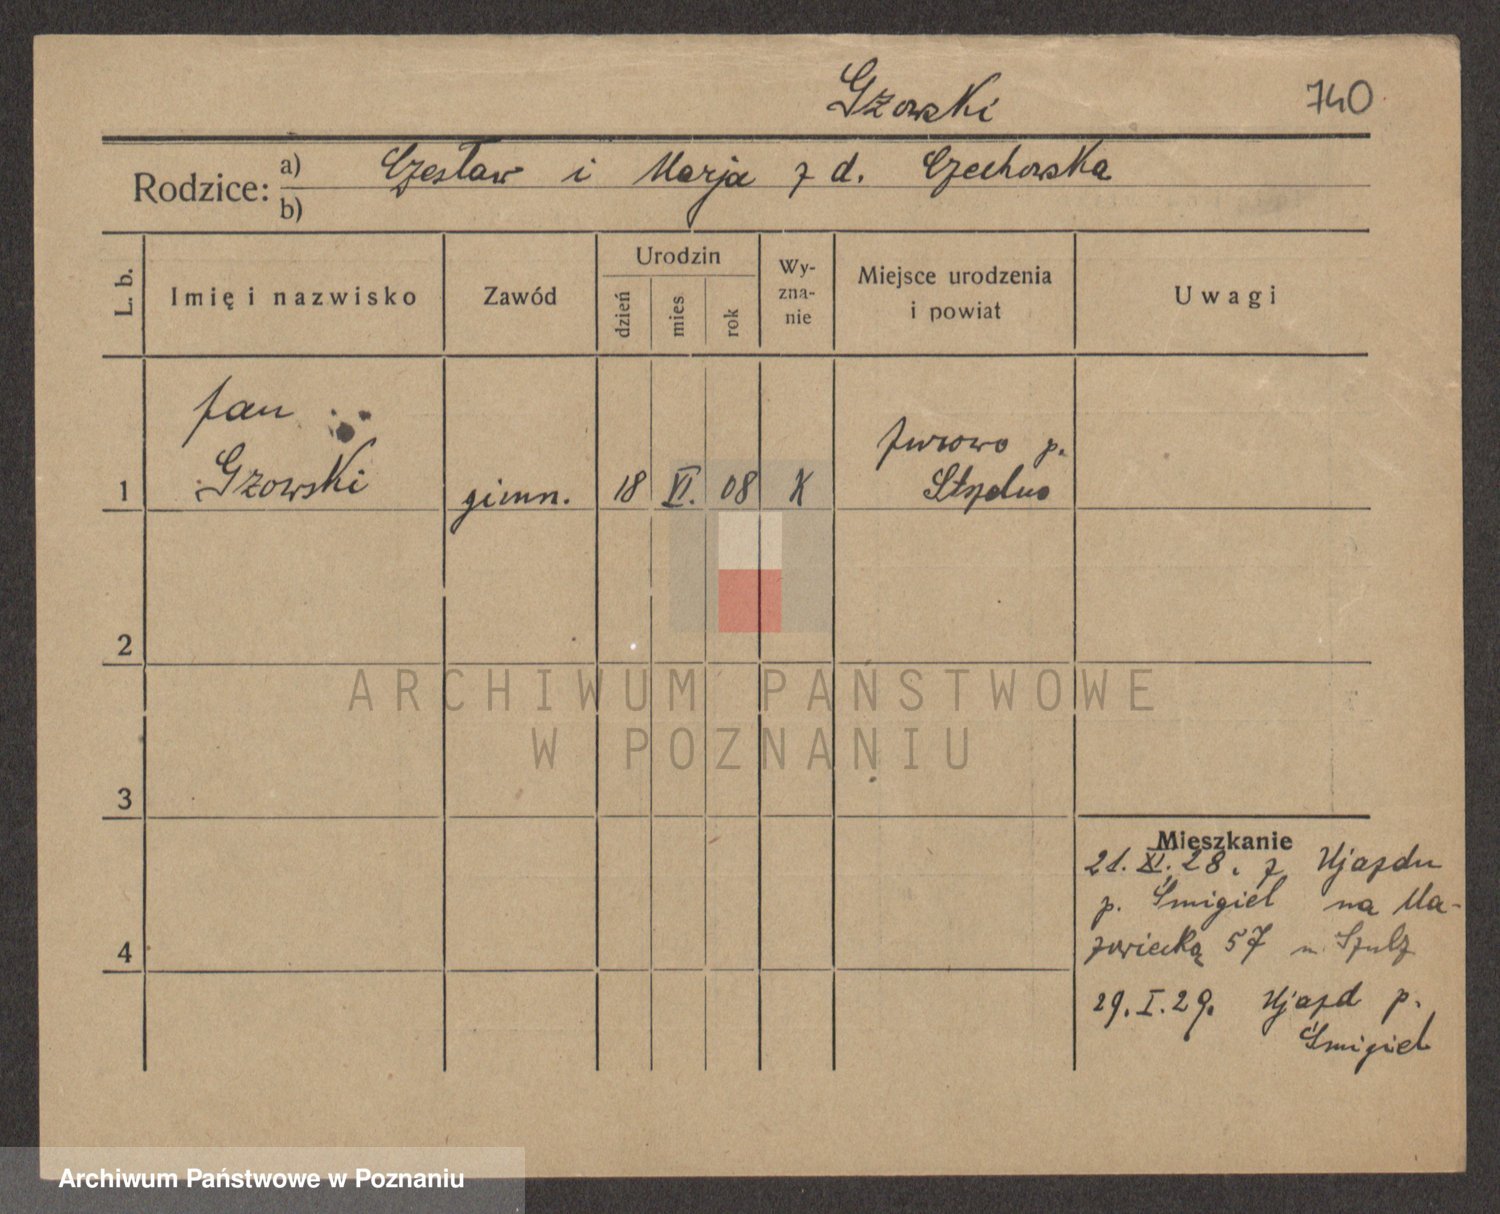 Gzowski
740
Rodzice: a) Czesław i Marja z d. Czechowska
b)
L. b.
Imię i nazwisko
Zawód
Urodzin
dzień
mies
rok
Wy-
zna-
nie
Miejsce urodzenia
i powiat
Uwagi
Jan
1 Gzowski gimn. 18 VI. 08 K
p.
2
3
4
Mieszkanie
21. XI. 28. z Ujazdu
p. Śmigiel na Ma-
zowiecką 57 u Szulz
29. I. 29. Ujazd p.
Śmigiel
ARCHIWUM PAŃSTWOWE
W POZNANIU
Archiwum Państwowe w Poznaniu